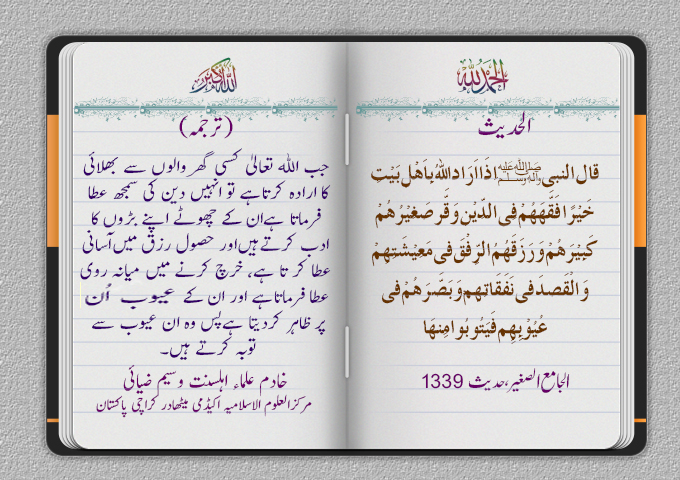 الحمد لله
الحدیث
قال النبی صلی اللہ علیہ وآلہ وسلم اذَا اَرَادَ اللّٰهُ بِاَهْلِ بَيْتٍ
خَيْرًا فَقَّهَهُمْ فِى الدِّيْنِ وَقَّرَ صَغِيْرُهُمْ
كَبِيْرَهُمْ وَرَزَقَهُمُ الرِّفْقَ فِى مَعِيْشَتِهِمْ
وَالْقَصْدَ فِى نَفَقَاتِهِم وَبَصَّرَهُمْ فِى
عُيُوْبِهِمْ فَيَتُوبُوا مِنهَا
الجامع الصغیر،حدیث 1339
الله اكبر
(ترجمہ)
جب اللہ تعالیٰ کسی گھر والوں سے بھلائی
کا ارادہ کرتا ہے تو انہیں دین کی سمجھ عطا
فرماتا ہے ان کے چھوٹے اپنے بڑوں کا
ادب کرتے ہیں اور حصول رزق میں آسانی
عطا کرتا ہے، خرچ کرنے میں میانہ روی
عطا فرماتا ہے اور ان کے عیوب اُن
پر ظاہر کر دیتا ہے پس وہ ان عیوب سے
توبہ کرتے ہیں۔
خادم علماء اہلسنت وسیم ضیائی
مرکز العلوم الاسلامیہ اکیڈمی میٹھادر کراچی پاکستان